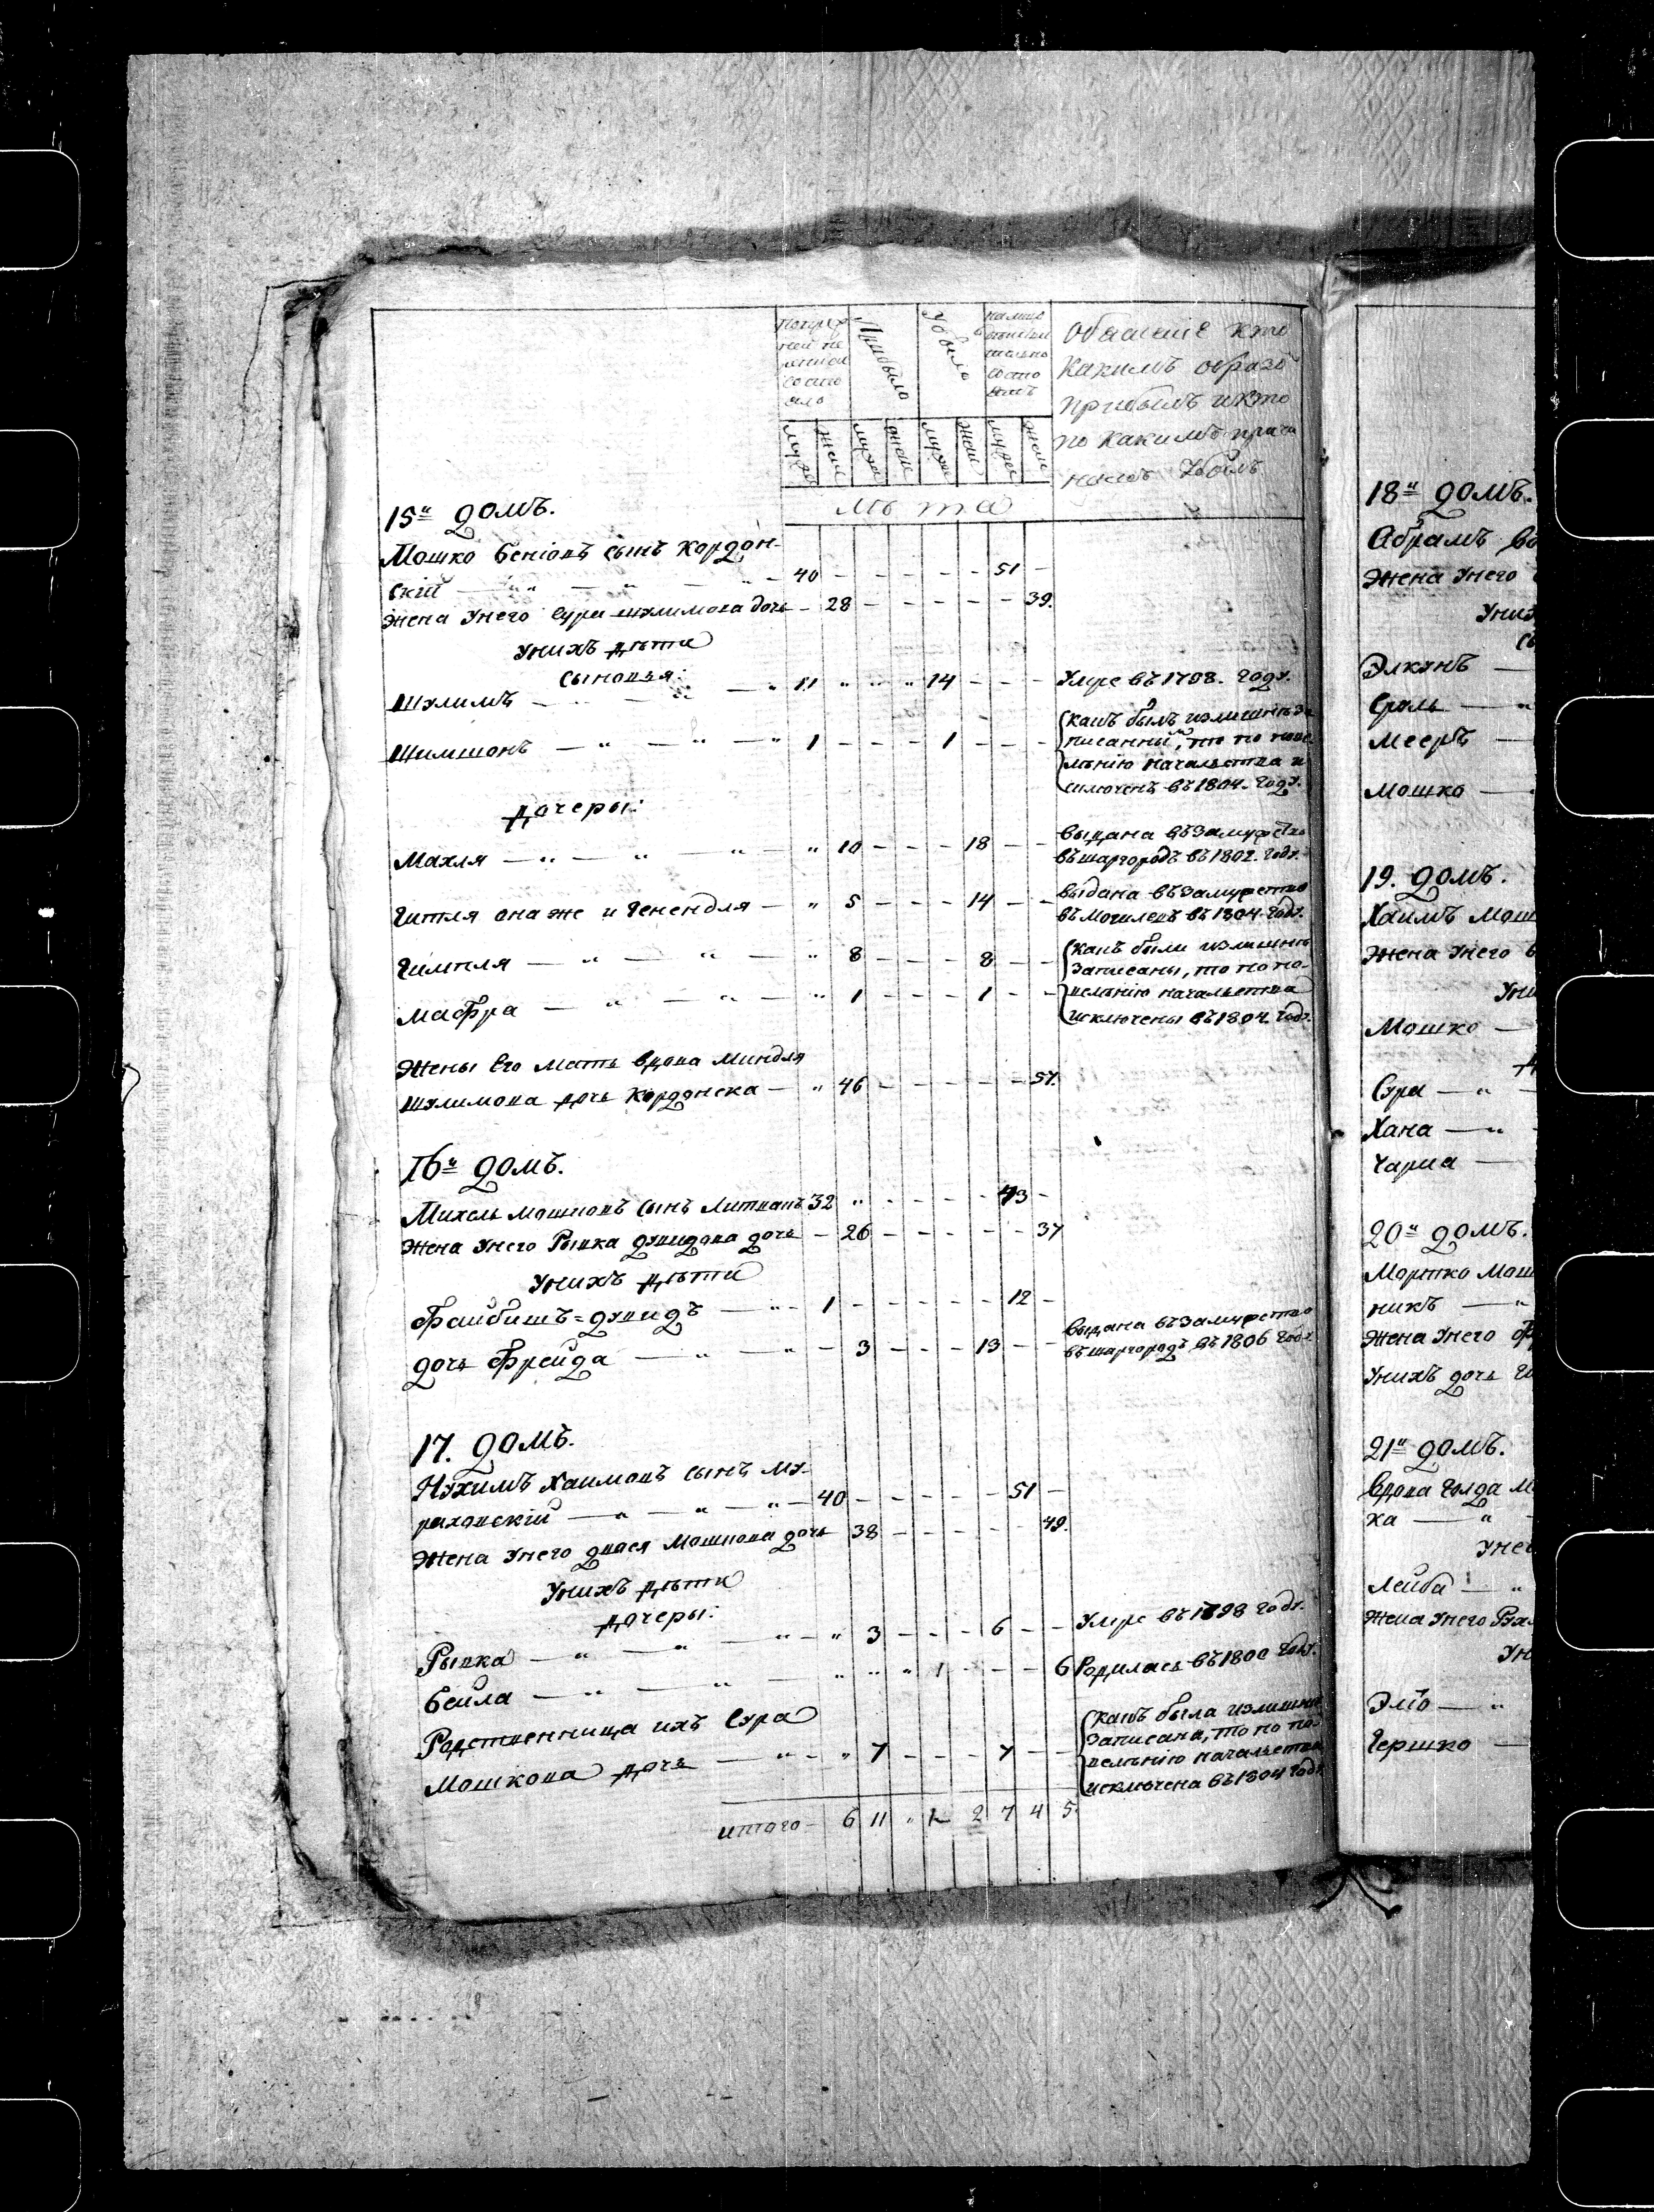 Прибыло
Убыло
кто
какимъ образо
прибылъ и кто
по какимъ причи
намъ убылъ
муже
жен
муже
жен
муже
жен
муже
жен
лѣта
15ᵘ домъ.
Мошко Беніовъ сынъ Кордон-
скій — " — " — 40 - - - - - 51 -
жена унего Сура шулимова дочь - 28 - - - - - 39.
унихъ дѣти
сыновья:
Шулимъ — " — " 11 " " " 14 - - - Умре въ 1798. году.
Шимшонъ — " — " — " 1 - - - 1 - - - какъ былъ излишнѣ за
писанный, то по пове
лѣнію начальства и
сключенъ въ 1804. году.
дочеры:
Махля — " — " — " — " 10 - - - 18 - - выдана въ замужство
въ шаргородъ въ 1802. году.
Гитля она же и Генендля — " 5 - - - 14 - - выдана въ замужство
въ Могилевъ въ 1804. году.
Гимпля — " — " — " 8 - - - 8 - - какъ были излишнѣ
записаны, то по по-
Мафра — " — " — " 1 - - - 1 - - велѣнію начальства
исключены въ 1804. году.
Жены его мать вдова Миндля
шулимова дочь Кордонска — " 46 - - - - - 57.
16ᵘ домъ.
Михель Мошковъ сынъ Литвакъ 32 " - - - - 43 -
жена унего Рывка дувидова дочь - 26 - - - - - 37
унихъ дѣти
Файбишъ=дувидъ — " - 1 - - - - - 12 -
дочь Фрейда — " — " - 3 - - - 13 - - выдана въ замужство
въ шаргородъ въ 1806 году
17. домъ.
Нухимъ Хаимовъ сынъ Му-
рахонскій — " — " — 40 - - - - - 51 -
жена унего двася Мошкова дочь 38 - - - - - 49.
унихъ дѣти
дочеры:
Рывка — " — " — " - " 3 - - - 6 - - Умре въ 1798 году.
Бейла — " — " — " " " 1 - - - 6 Родилась въ 1800 году.
Родственница ихъ Сура
Мошкова дочь — " - " 7 - - - 7 - - какъ была излишнѣ
записана, то по по-
велѣнію начальства
исключена въ 1804 году
итого - 6 11 " 1 2 7 4 5.
18ᵘ домъ.
Абрамъ
Жена унего
Элкунъ —
Сроль — "
Мееръ —
Мошко —
19. домъ.
Хаимъ Мош
Жена унего
Мошко —
Сура — "
Хана — "
Чарна —
20ᵘ домъ.
Мортко Мош
никъ — "
Жена унего
Унихъ дочь
21ᵘ домъ.
Вдова Голда М
ха — "
Лейба — "
Жена унего
Эліо — "
Гершко —